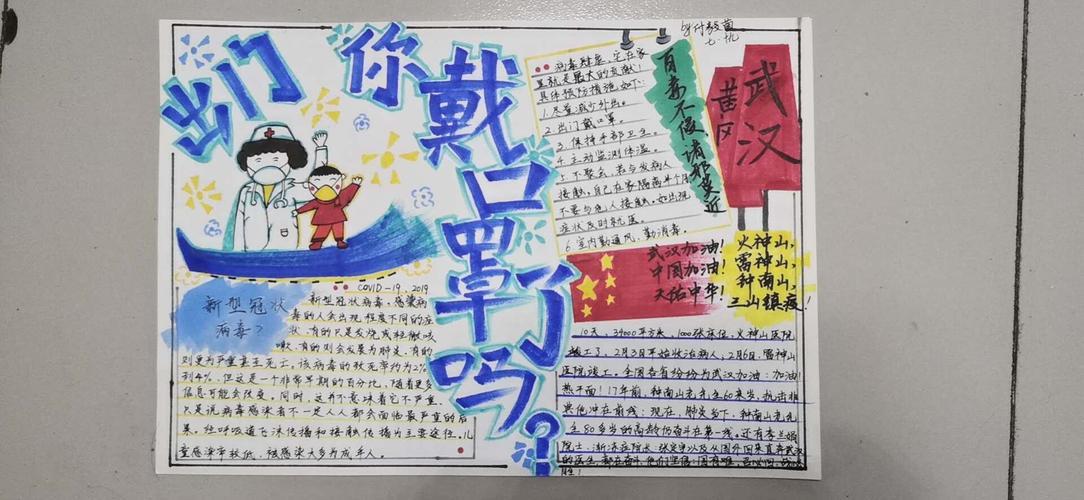 出门你戴口罩了吗?
付
七.九
病毒肆虐,宅在家
里就是最大的贡献!
具体预防措施如下:
1.尽量减少外出。
2.出门戴口罩。
3.保持手部卫生。
4.主动监测体温。
5.不聚会,若与发病人
接触,自己在家隔离半个月
不要与他人接触。如出现
症状及时就医。
6.室内勤通风,勤消毒。
有毒不假,请都莫近
武汉
黄冈
武汉加油!
中国加油!
天佑中华!
火神山,
雷神山,
钟南山,
三山镇疫!
COVID-19,2019
新型冠状
病毒?
新型冠状病毒。感染病
毒的人会出现程度不同的症
状,有的只是发烧或轻微咳
嗽,有的则会发展为肺炎,有的
则更为严重甚至死亡。该病毒的致死率约为2%
到4%,但这是一个非常早期的百分比,随着更多
信息可能会改变。同时,这并不意味着它不严重,
只是说病毒感染者不一定人人都会面临最严重的后
果。经呼吸道飞沫传播和接触传播为主要途径。儿
童感染率较低,感染大多为成年人。
10天,34000平方米,1000张床位,火神山医院
竣工了,2月3日开始收治病人,2月6日,雷神山
医院竣工。全国各省纷纷为武汉加油:加油!
热干面!17年前,钟南山先生60来岁,抗击非
典他冲在前线,现在,肺炎当下,钟南山先生
80多岁的高龄仍奋斗在第一线。还有李兰娟
院士,渐冻症院长张定宇以及从国外回来直奔武汉
的医生,都在奋斗。
胜!